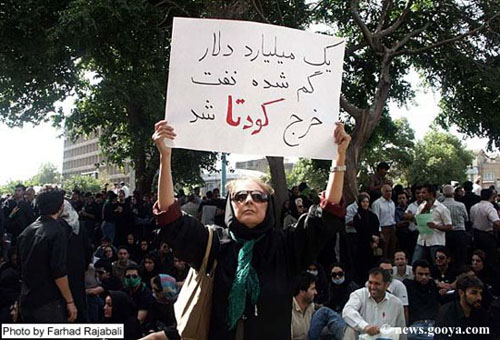 یک میلیارد دلار
گم شده نفت
خرج کودتا شد
Photo by Farhad Rajabali
© news.gooya.com